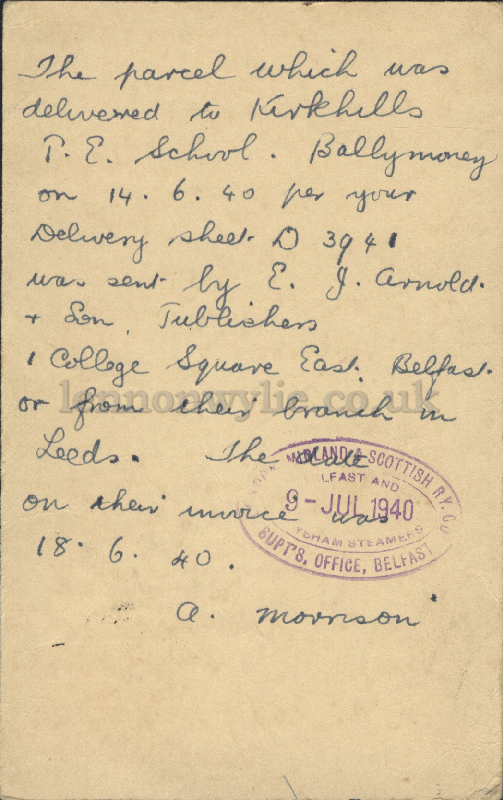 The parcel which was
delivered to Kirkhills
P. E. School. Ballymoney
on 14. 6. 40 per your
Delivery sheet D 3941
was sent by E. J. Arnold.
+ Son, Publishers
1 College Square East. Belfast.
or from their branch in
lennonwylie.co.uk
Leeds. The date
on their invoice was
18. 6. 40.
A. Morrison
MIDLAND & SCOTTISH RY. CO
LFAST AND
9-JUL 1940
YSHAM STEAMERS
SUPT'S. OFFICE, BELFAST